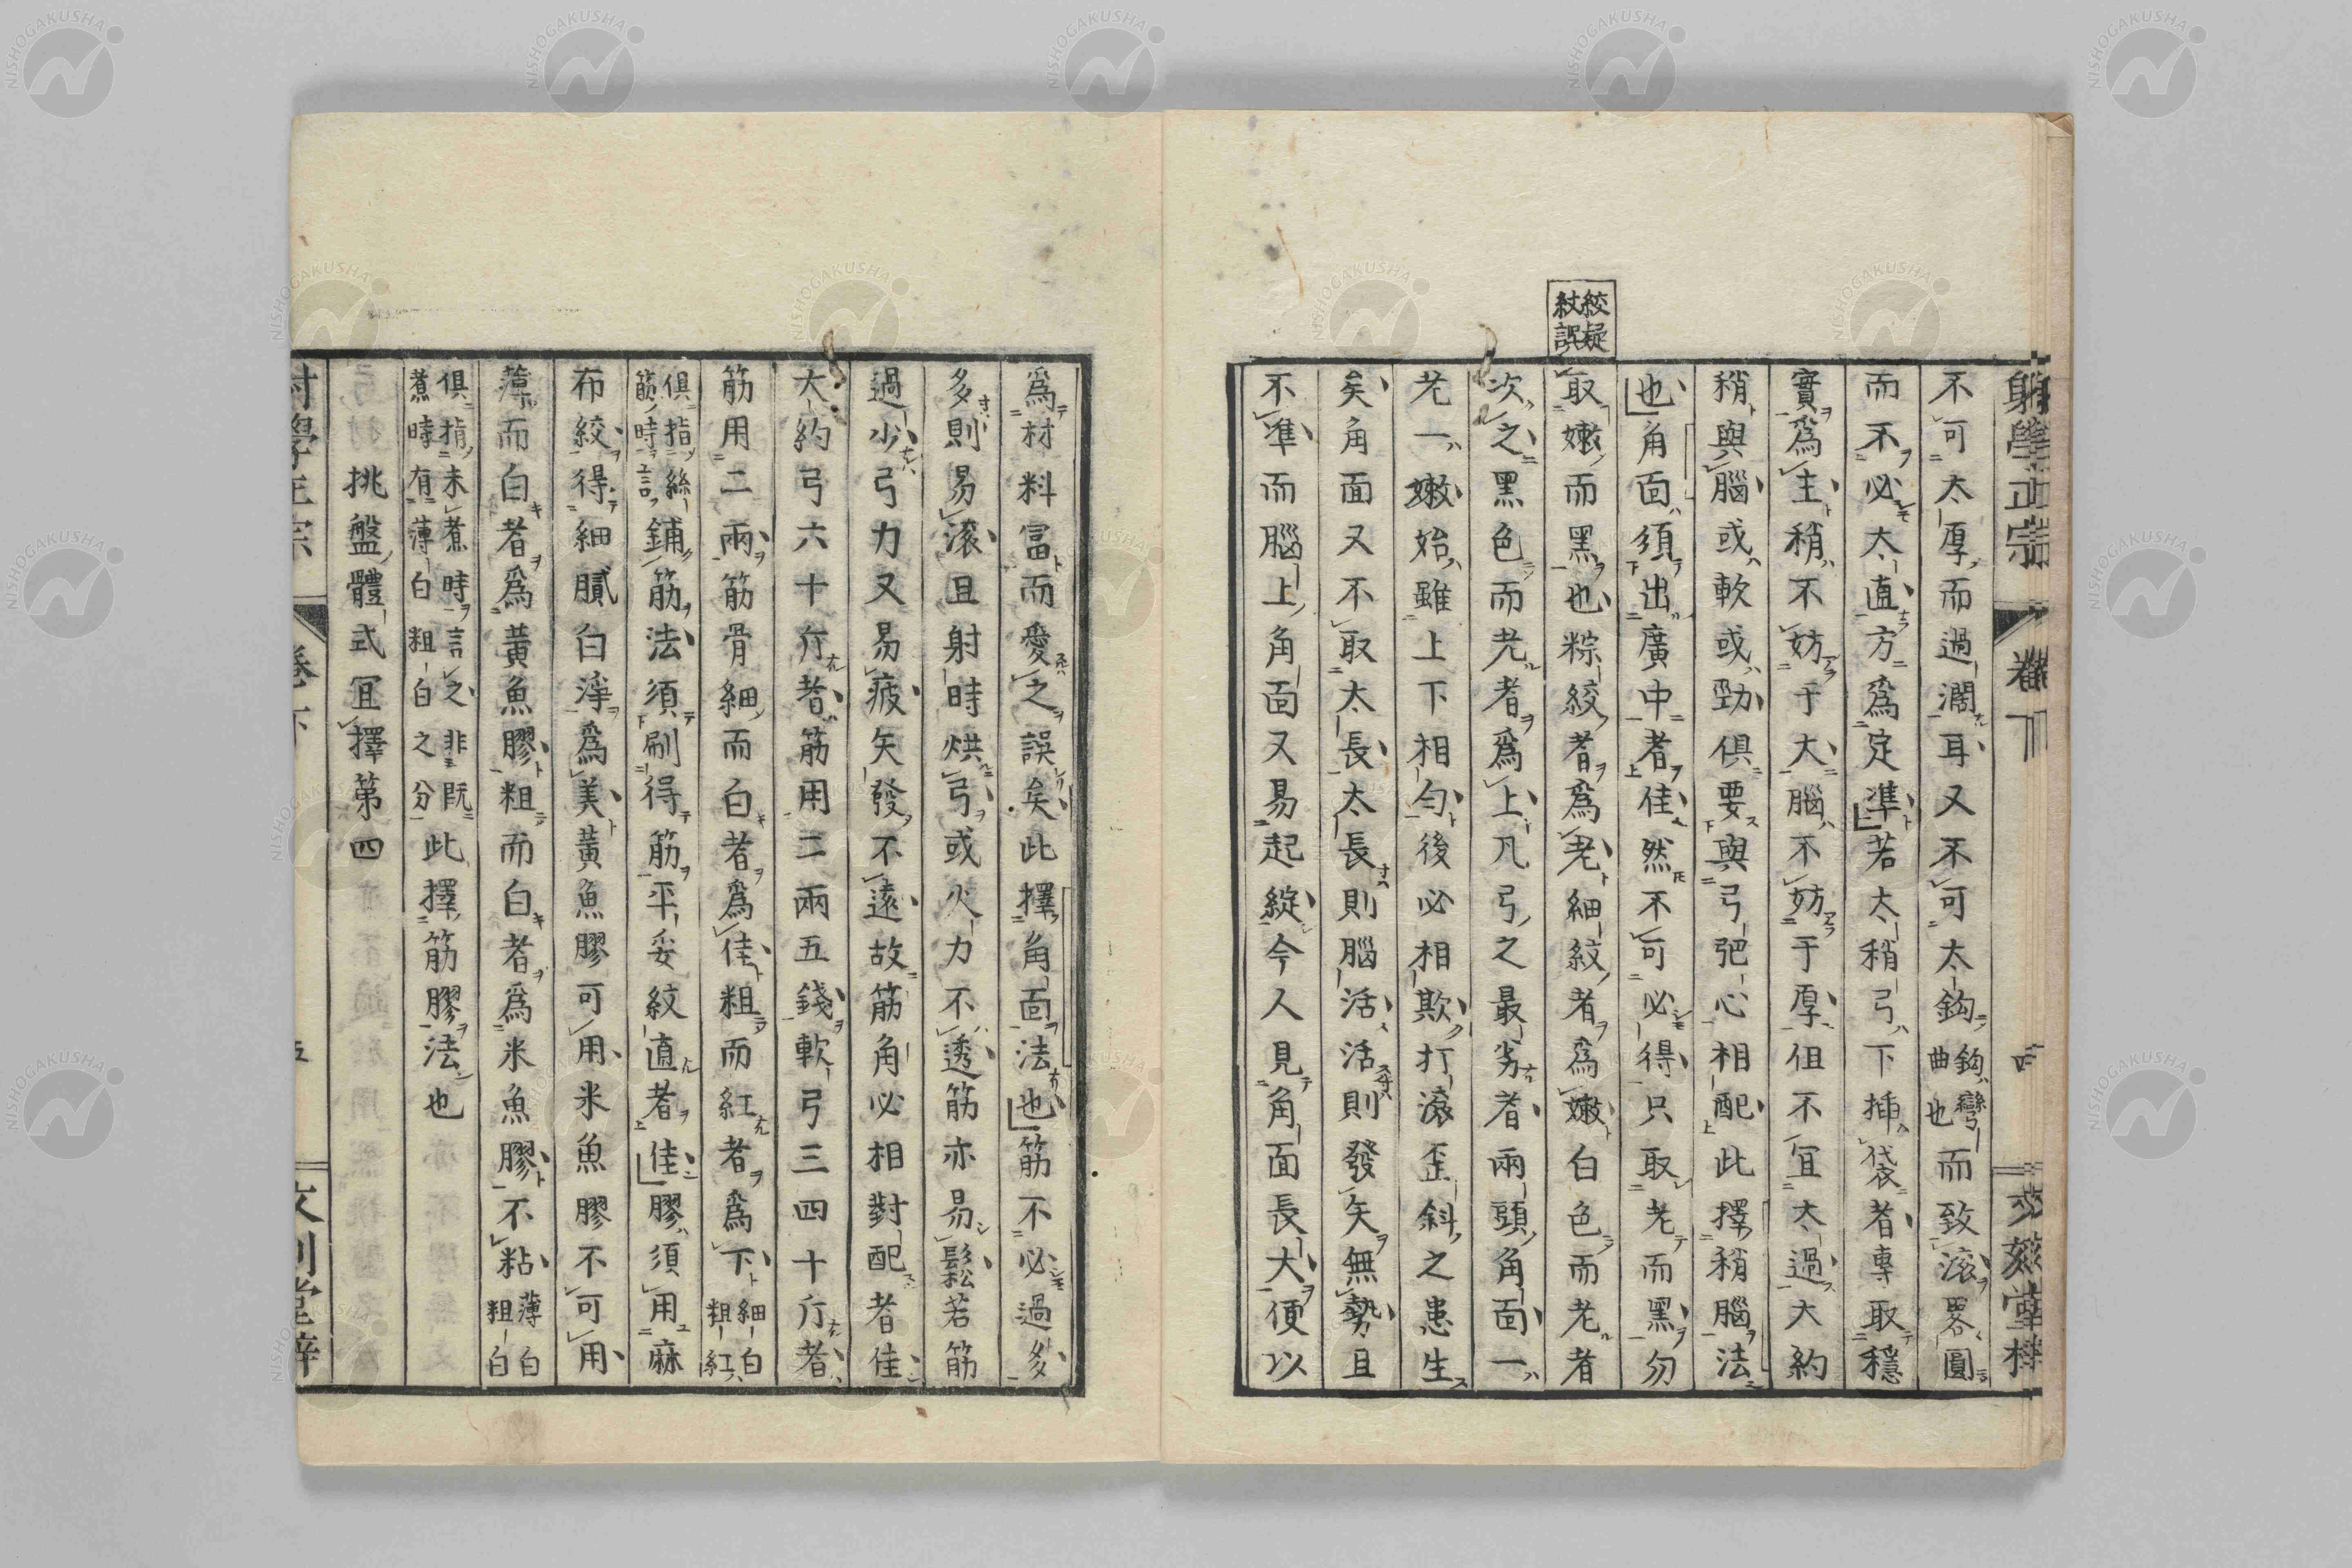 射學正宗 卷下 四
不可太厚而過濶耳又不可太鈎鈎彎曲也而致滚畧圓
而不必太直方爲定準若太稍弓下揷袋者專取穩
實爲主稍不妨于大腦不妨于厚但不宜太過大約
稍與腦或軟或勁俱要與弓弝心相配此擇稍腦法
也角面須出廣中者佳然不可必得只取老而黑勿
取嫩而黑也粽絞者爲老細紋者爲嫩白色而老者
次之黑色而老者爲上凡弓之最劣者兩頭角面一
老一嫩始雖上下相勻後必相欺打滚歪斜之患生
矣角面又不取太長太長則腦活活則發矢無勢且
不準而腦上角面又易起綻今人見角面長大便以
絞疑
紋誤
爲材料富而愛之誤矣此擇角面法也筋不必過多
多則易滚且射時烘弓或火力不透筋亦易鬆若筋
過少弓力又易疲矢發不遠故筋角必相對配者佳
大約弓六十斤者筋用二兩五錢軟弓三四十斤者
筋用二兩筋骨細而白者爲佳粗而紅者爲下細白粗紅
俱指絲筋時言鋪筋法須刷得筋平妥紋直者佳膠須用麻
布絞得細膩白淨爲美黃魚膠可用米魚膠不可用
薄而白者爲黃魚膠粗而白者爲米魚膠不粘薄白粗白
俱指未煮時言之非旣煮時有薄白粗白之分此擇筋膠法也
挑盤體式宜擇第四